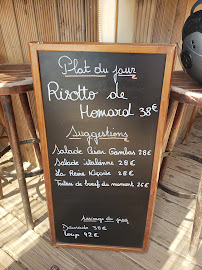 Plat du jour
Risotto de
Homard 38€
Suggestions
Salade César Gambas 28€
Salade italienne 28€
La Reine Niçoise 28€
du moment 26€
Daurade 38€
Loup 42€